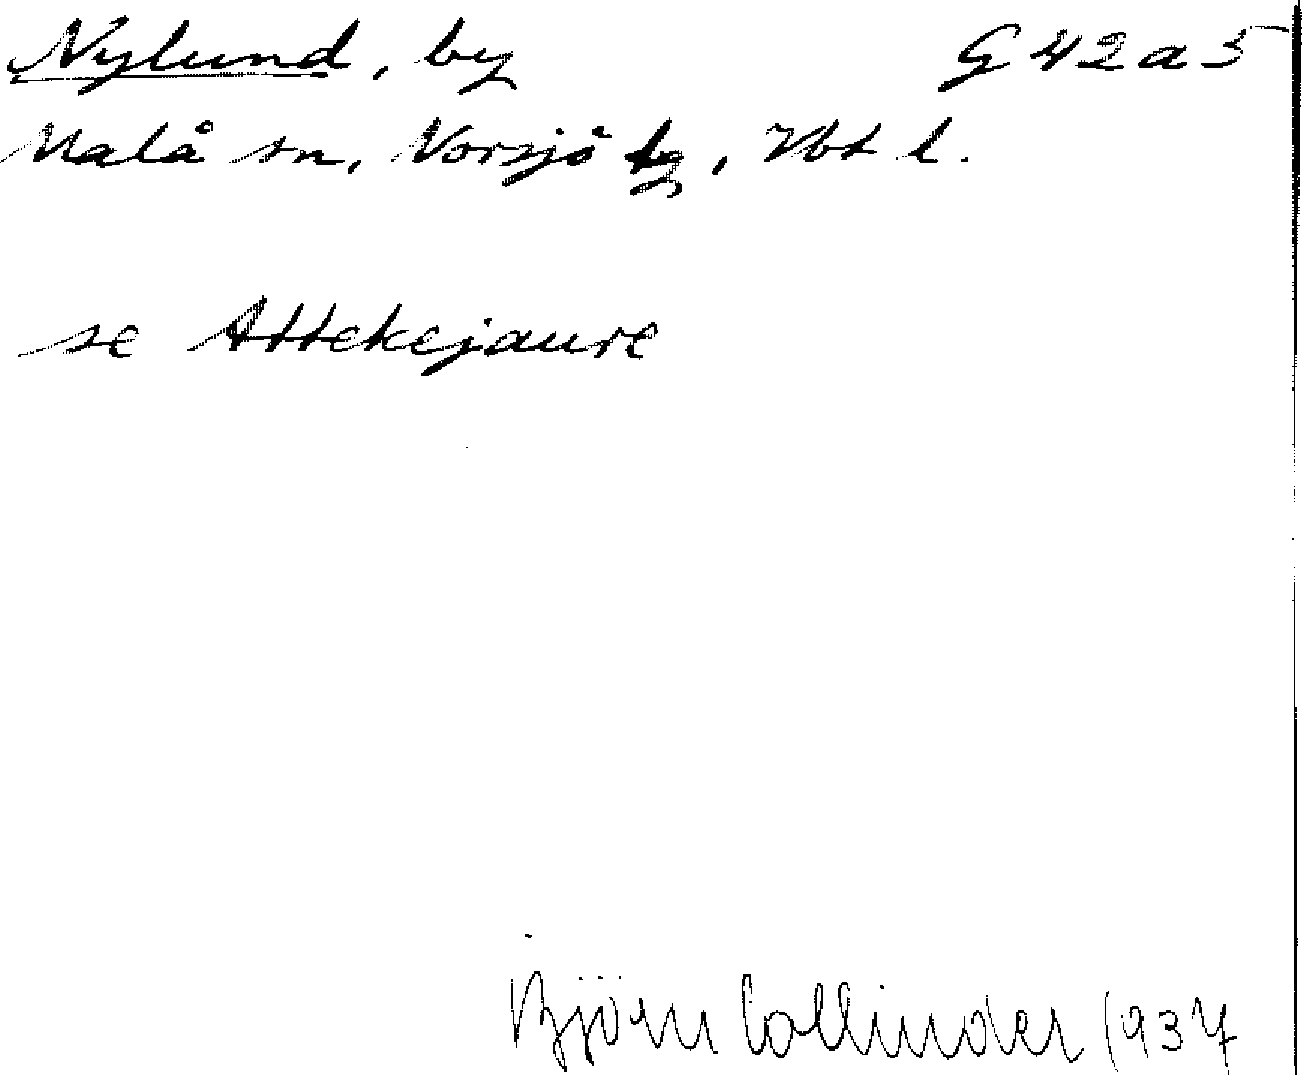 Nylund, by G 42 a 5
Malå sn, Norsjö tg, Vbt l.
se Attekejaure
Björn Collinder 1937